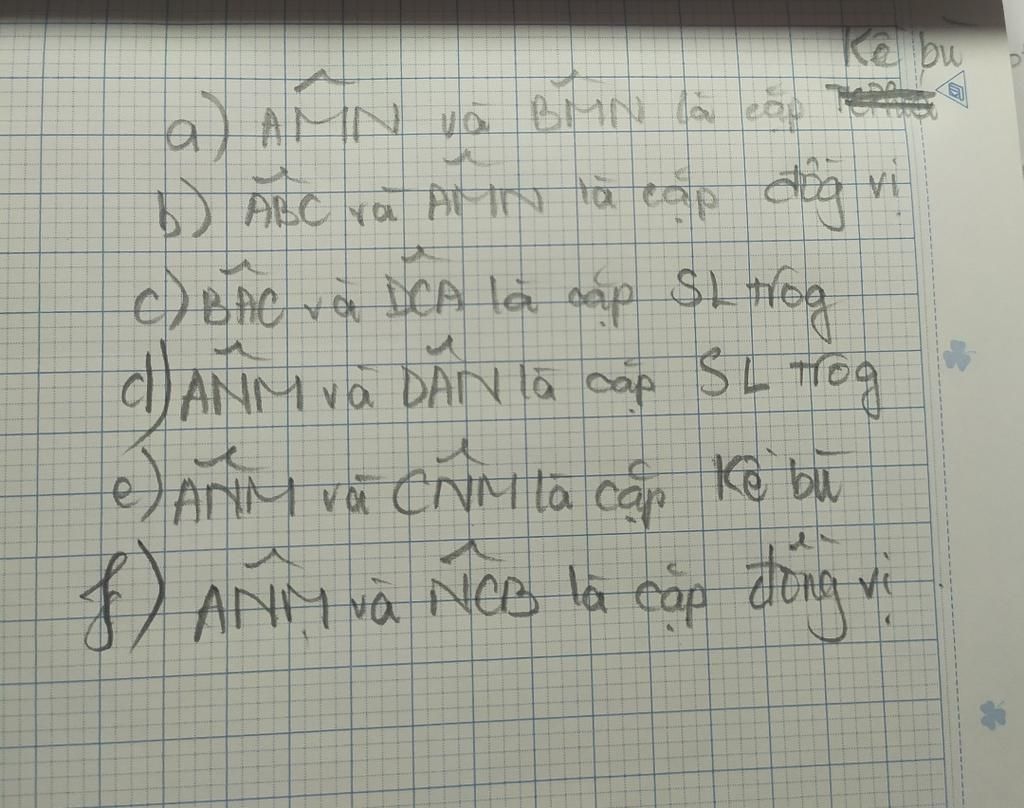 Kề bù
a) AM̂N và BM̂N là cặp
b) AB̂C và AM̂N là cặp đôg̀ vị
c) BÂC và DĈA là cặp SL trog
d) AN̂M và DÂN là cặp SL trog
e) AN̂M và CN̂M là cặp Kề bù
f) AN̂M và NĈB là cặp đồng vị